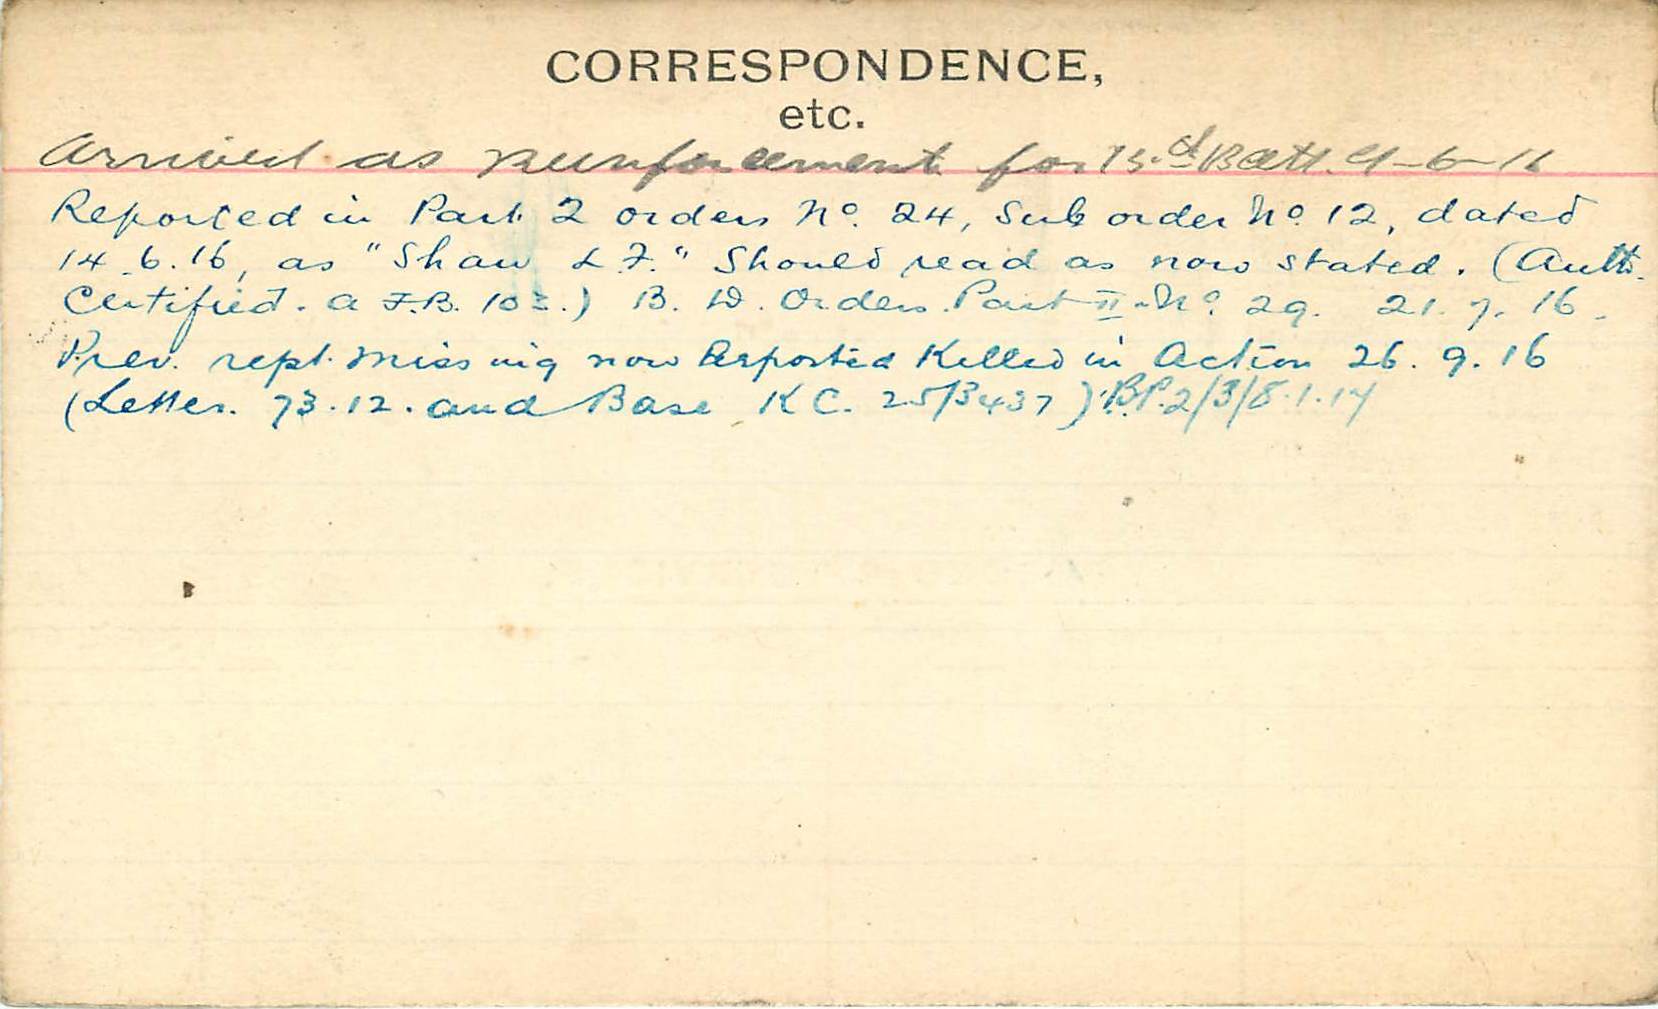 CORRESPONDENCE,
etc.
Arrived as reinforcement for Batt. 9-6-16
Reported in Part 2 orders No. 24, Sub order No 12, dated
14.6.16, as "Shaw L.F." Should read as now stated. (Auth.
Certified. A F.B. 103.) B. D. Orders Part II No. 29. 21.7.16.
Prev. rept. missing now Reported Killed in Action 26.9.16
(Letter. 73.12. and Base K C. 25/3437)